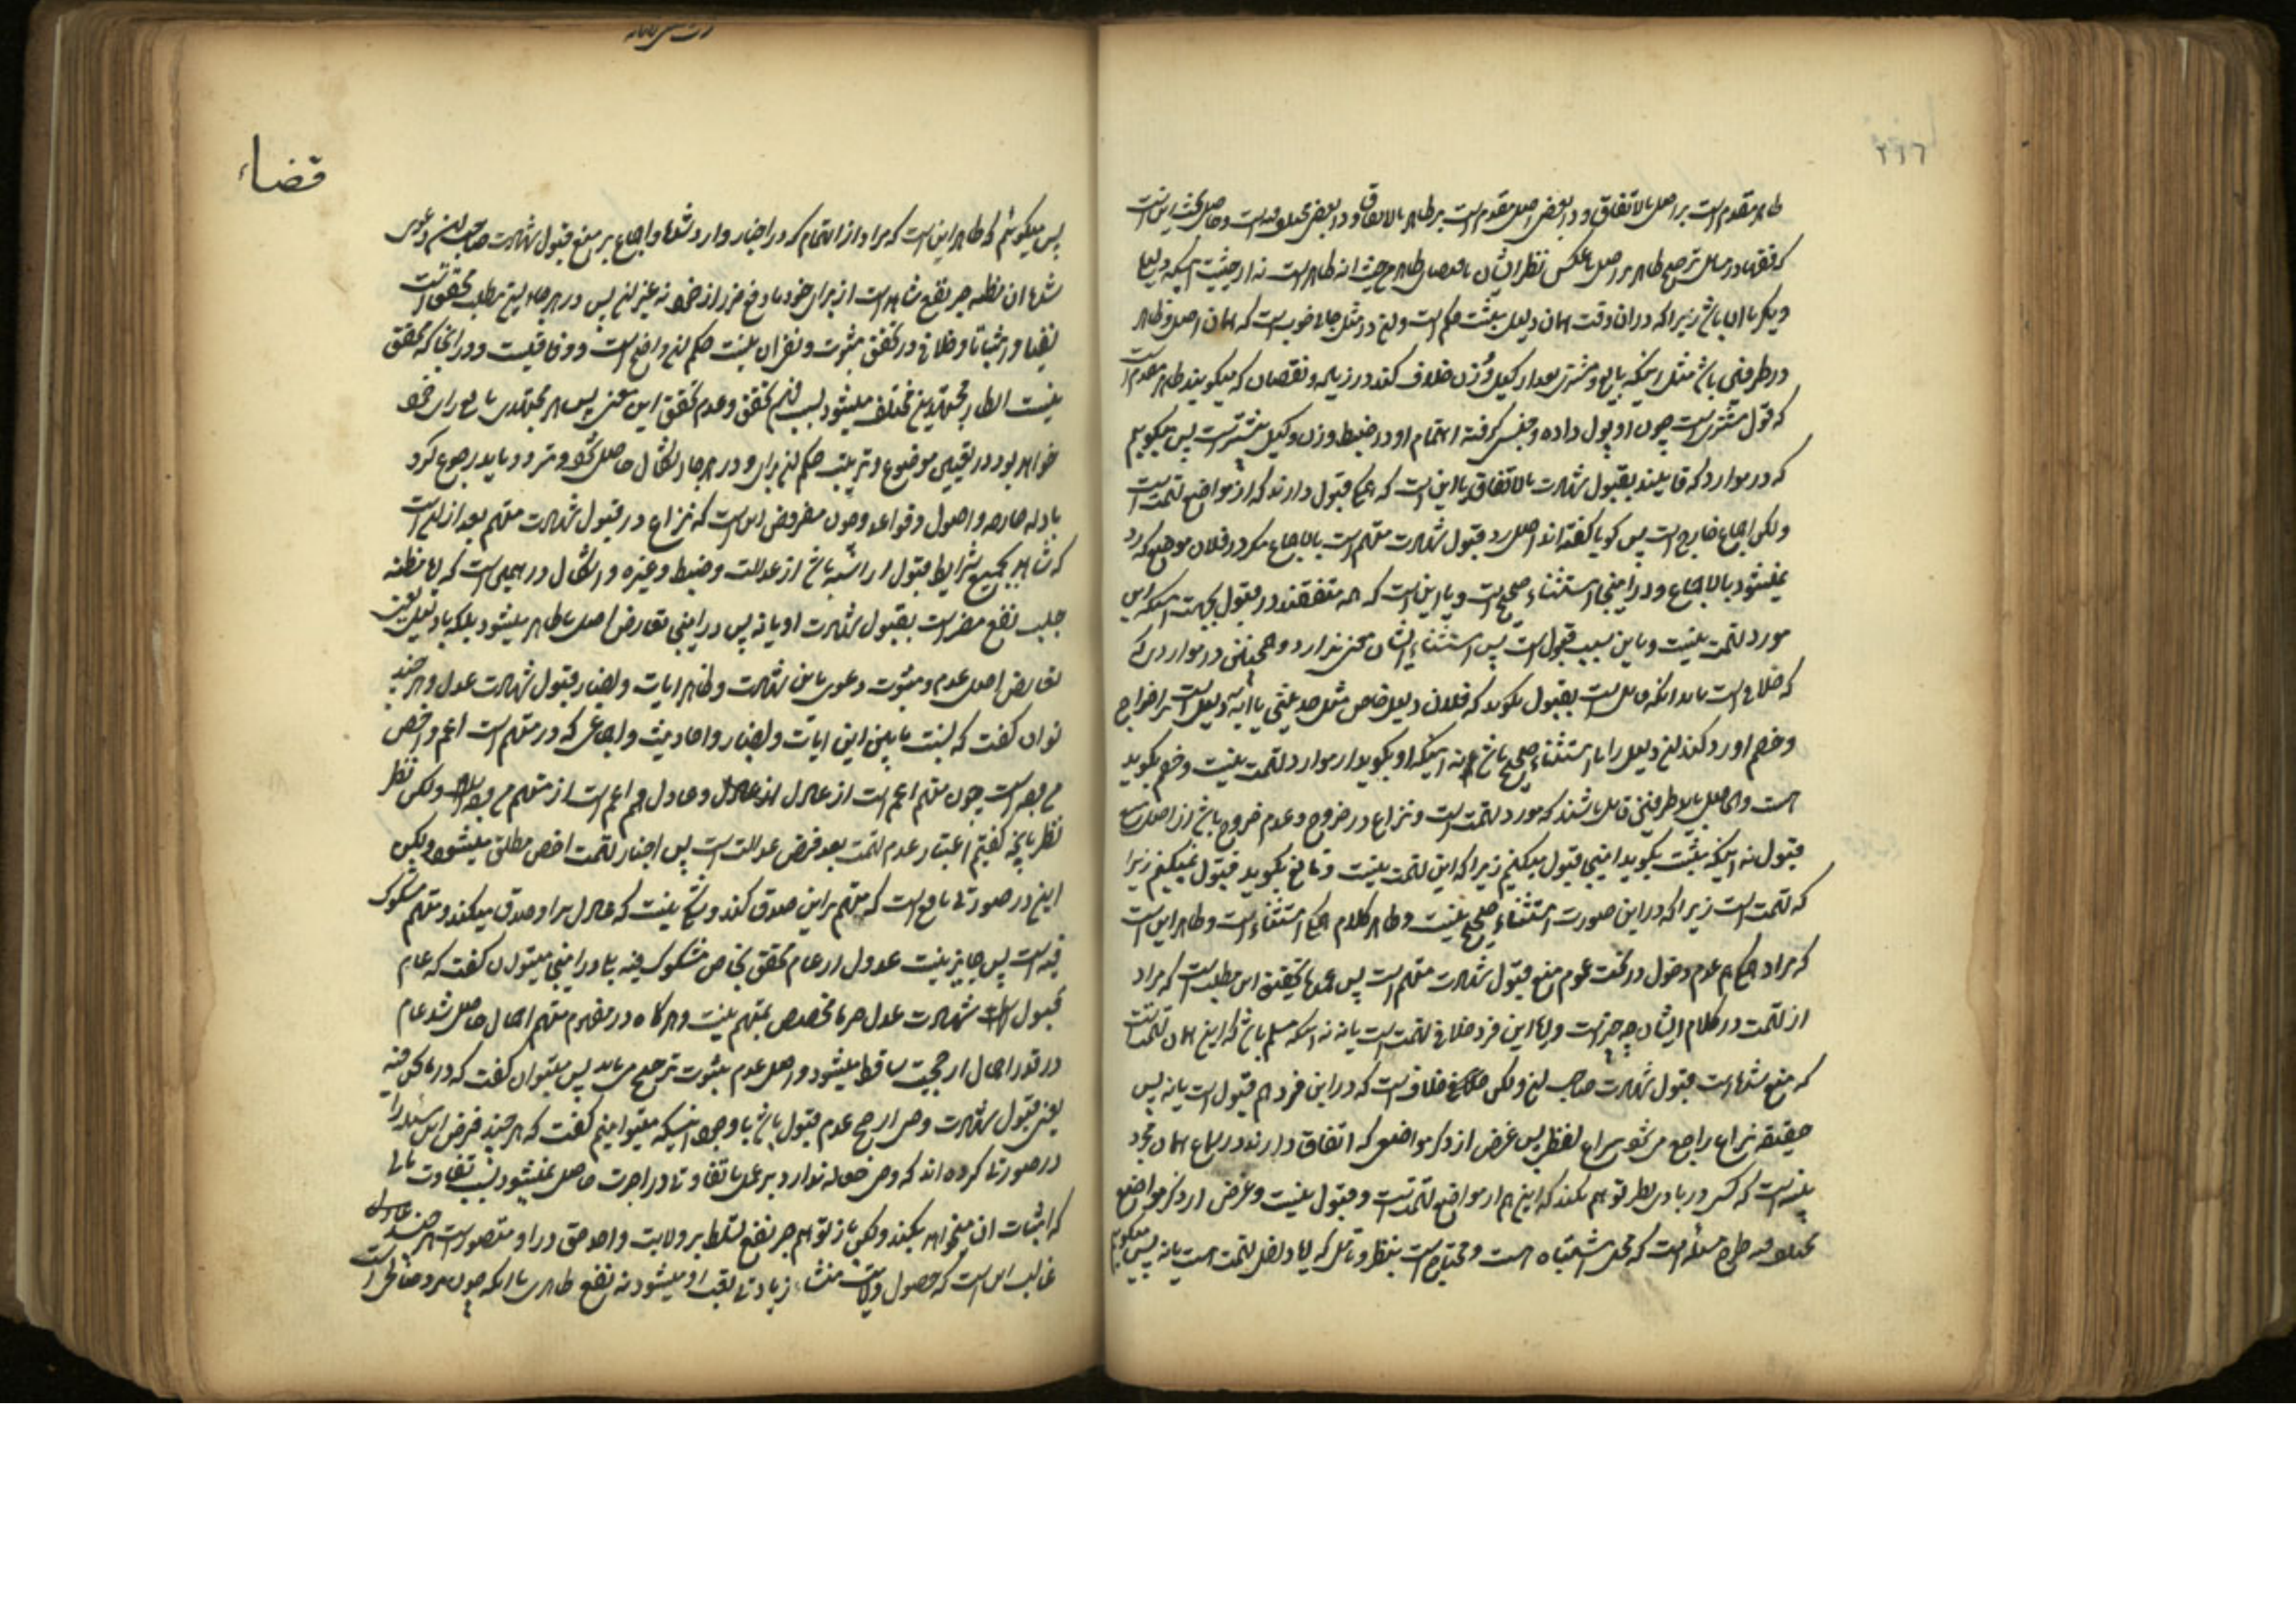 ۲۱۶
ظاهر مقدم است بر اصل بالاتفاق و در بعضی اصل مقدم است بر ظاهر بالاتفاق و در بعضی مختلف فیه است و حاصل بحث این است
که فقها در مسائل ترجیح ظاهر بر اصل یا عکس نظر ایشان بمعنای ظاهر من حیث انه ظاهر است نه از حیثیت اینکه دلیل
دیگر با آن باشد زیرا که در آن وقت همان دلیل مثبت حکم است و این در مثل جایی خوب است که همان اصل و ظاهر
در طرفین باشد مثل اینکه بایع و مشتری بعد از کیل و وزن خلاف کنند در زیاده و نقصان که میگویند ظاهر مقدم است
که قول مشتری است چون او پول داده و جنس گرفته اهتمام او در ضبط وزن و کیل بیشتر است پس میگوییم
که در مواردی که قایلند بقبول شهادت بالاتفاق یا این است که اجماع قبول دارند که از مواضع تهمت است
ولکن اجماعا خارج است پس گویا گفته‌اند اصل رد قبول شهادت متهم است بالاجماع مگر در فلان موضع که رد
نمیشود بالاجماع و در اینجا استثناء صحیح است و یا این است که همه متفقند در قبول بجهت اینکه این
مورد تهمت نیست و باین سبب قبول است پس استثناء ایشان معنی ندارد و همچنین در مواردی
که خلاف است باید آنکه قایل است بقبول بگوید که فلان دلیل خاص مثل حدیثی یا آیه دلیل است بر اخراج
و خصم او رد کند این دلیل را تا استثناء صحیح باشد نه اینکه او بگوید از موارد تهمت نیست و خصم بگوید
هست والحاصل باید طرفین قایل باشند که مورد تهمت است و نزاع در خروج و عدم خروج باشد از اصل منع
قبول نه اینکه مثبت بگوید اینجا قبول میکنیم زیرا که این تهمت نیست و نافی بگوید قبول نمیکنیم زیرا
که تهمت است زیرا که در این صورت استثناء صحیح نیست و ظاهر کلام اجماع استثناء است و ظاهر این است
که مراد عدم دخول در تحت عموم منع قبول شهادت متهم است پس عمده تحقیق این مطلب است که مراد
از تهمت در کلام ایشان چه چیز است و آیا این فرد خلافی تهمت است یا نه نه اینکه مسلم باشد که این همان تهمت است
که منع شده است قبول شهادت صاحب این ولکن خلاف است که در این فرد هم قبول است یا نه پس
حقیقة نزاع راجع می شود بنزاع لفظی پس غرض از ذکر مواضعی که اتفاق دارند در سماع همان مجرد
که کسی در بادی نظر توهم نکند که این هم از مواضع تهمت است و قبول نیست و غرض از ذکر مواضع
مختلف فیه طرح مسئله است که محل اشتباه است و محتاج است بنظر و تامل که آیا داخل تهمت است یا نه پس میگوییم
قضاء
پس میگوئیم که ظاهر این است که مراد از اتهام که در اخبار وارد شده و اجماع بر منع قبول شهادت صاحب آن دعوی
شده آن مظنه جر نفع شاهد است از برای خود یا دفع ضرر از خود نه غیر این پس در هر جا این مطلب محقق است
نفیا و اثباتا و خلافی در تحقق ثبوت و نفی آن نیست حکم این واضح است و وفاقیست و در آنجا که محقق
نیست انظار مجتهدین مختلف میشود بسبب فهم تحقق و عدم تحقق این معنی پس هر مجتهدی تابع رای خود
خواهد بود در تعیین موضوع و ترتیب حکم این برای و در هر جا اشکال حاصل شد و تردد باید رجوع کرد
بادله خارجه و اصول و قواعد و چون مفروض این است که نزاع در قبول شهادت متهم بعد از این است
که شاهد جمیع شرایط قبول را داشته باشد از عدالت و ضبط و غیره و اشکال در همین است که آیا مظنه
جلب نفع مضر است بقبول شهادت او یا نه پس در اینجا تعارض اصل با ظاهر میشود بلکه با دلیل یعنی
تعارض اصل عدم و ثبوت دعوی باین شهادت و ظاهر آیات و اخبار قبول شهادت عدل و هر چند
توان گفت که نسبت ما بین این آیات و اخبار و احادیث و اجماعی که در متهم است اعم و اخص
من وجه است چون متهم اعم است از عادل و عادل هم اعم است از متهم من وجه ولکن نظر
نظر بآنچه گفتیم اعتبار عدم تهمت بعد فرض عدالت است پس اخبار تهمت اخص مطلق میشود ولکن
این در صورتی نافع است که متهم بر این صدق کند و شکی نیست که عادل بر او صدق میکند و متهم مشکوک
فیه است پس جایز نیست عدول از عام محقق بخاص مشکوک فیه بلی در اینجا میتوان گفت که عام
قبول شهادت عدل جز ما تخصیص بمتهم نیست و هرگاه در مفهوم متهم اجمال حاصل شد عام
در قدر اجمال از حجیت ساقط میشود و اصل عدم ثبوت ترجیح می یابد پس میتوان گفت که در ما نحن فیه
یعنی قبول شهادت وصی ارجح عدم قبول باشد با وجود اینکه میتوانیم گفت که هر چند فرض این مسئله را
در صورتی کرده‌اند که وصی جعاله ندارد بر عمل یا تفاوتی در اجرت حاصل نمیشود بسبب تفاوت مالی
که اثبات آن میخواهد بکند ولکن باز توهم جر نفع تسلط بر ولایت و اخذ حق در او متصور است هر چند عادل
غالب این است که حصول ولایت منشاء زیادتی تعب او میشود نه نفع ظاهری با آنکه چون